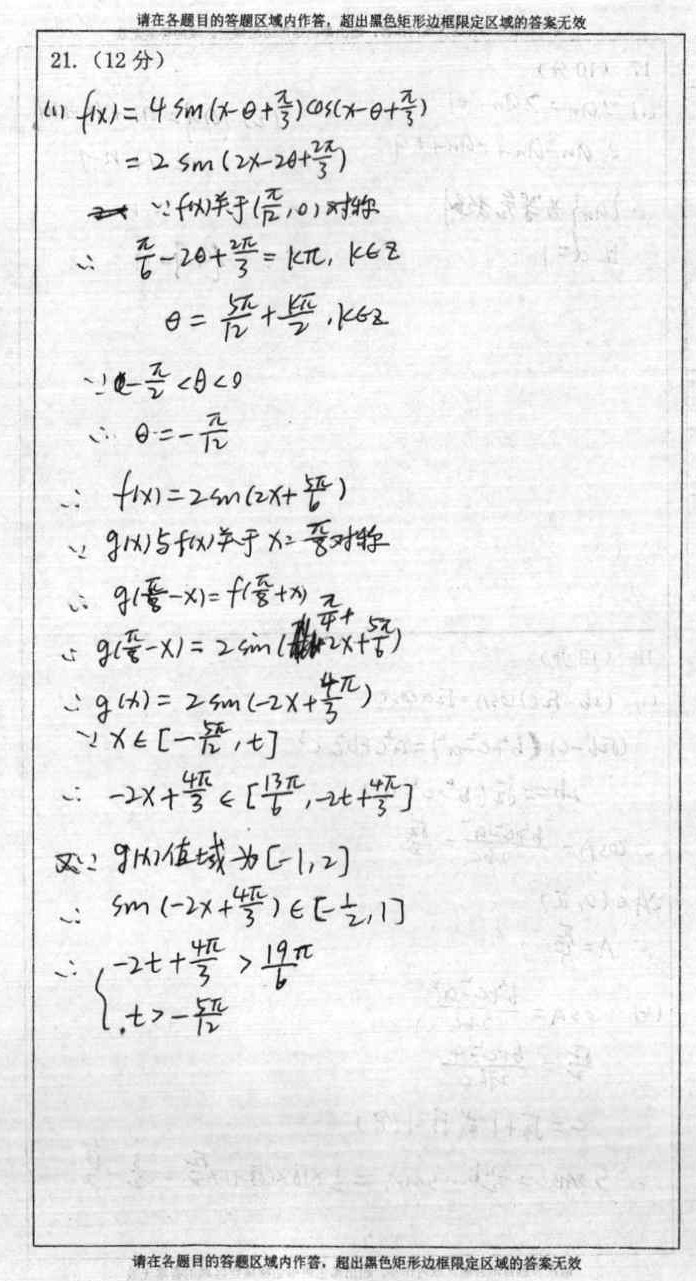 请在各题目的答题区域内作答，超出黑色矩形边框限定区域的答案无效
21.（12分）
(1) f(x) = 4 sin(x-θ+π/3)cos(x-θ+π/3)
= 2 sin(2x-2θ+2π/3)
∵ f(x)关于(π/12, 0)对称
∴ π/6-2θ+2π/3 = kπ, k∈Z
θ = 5π/12 + kπ/2, k∈Z
∵ -π/2 < θ < 0
∴ θ = -π/12
∴ f(x) = 2 sin(2x+5π/6)
∵ g(x)与f(x)关于 x = π/8 对称
∴ g(π/8-x) = f(π/8+x)
∴ g(π/8-x) = 2 sin(π/4+2x+5π/6)
∴ g(x) = 2 sin(-2x+4π/3)
∵ x∈[-5π/12, t]
∴ -2x+4π/3 ∈ [13π/6, -2t+4π/3]
又∵ g(x)值域为[-1, 2]
∴ sin(-2x+4π/3) ∈ [-1/2, 1]
∴ { -2t+4π/3 > 19π/6
t > -5π/12
请在各题目的答题区域内作答，超出黑色矩形边框限定区域的答案无效